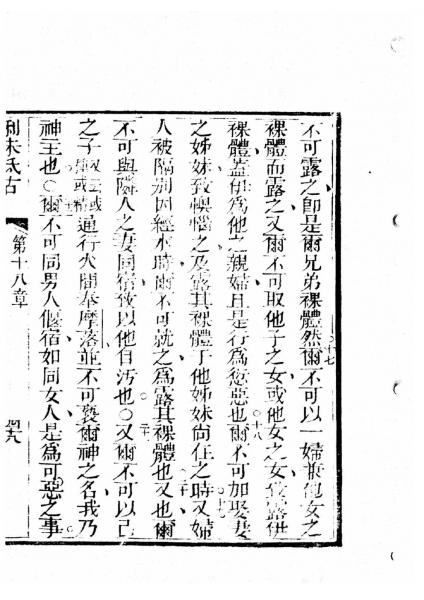 不可露之即是爾兄弟裸體然爾不可以一婦兼他女之
裸體而露之又爾不可取他子之女或他女之女致露伊
裸體蓋伊為他之親婦且是行為愆惡也爾不可加娶妻
之姊妹致懊惱之及露其裸體于他姊妹尚在之時又婦
人被隔别因經水時爾不可就之為露其裸體也又也爾
不可與隣人之妻同宿致以他自汚也○又爾不可以己
之子 通行火間奉摩落並不可褻爾神之名我乃
神王也○爾不可同男人偃宿如同女人是為可惡之事
利未氏古 第十八章